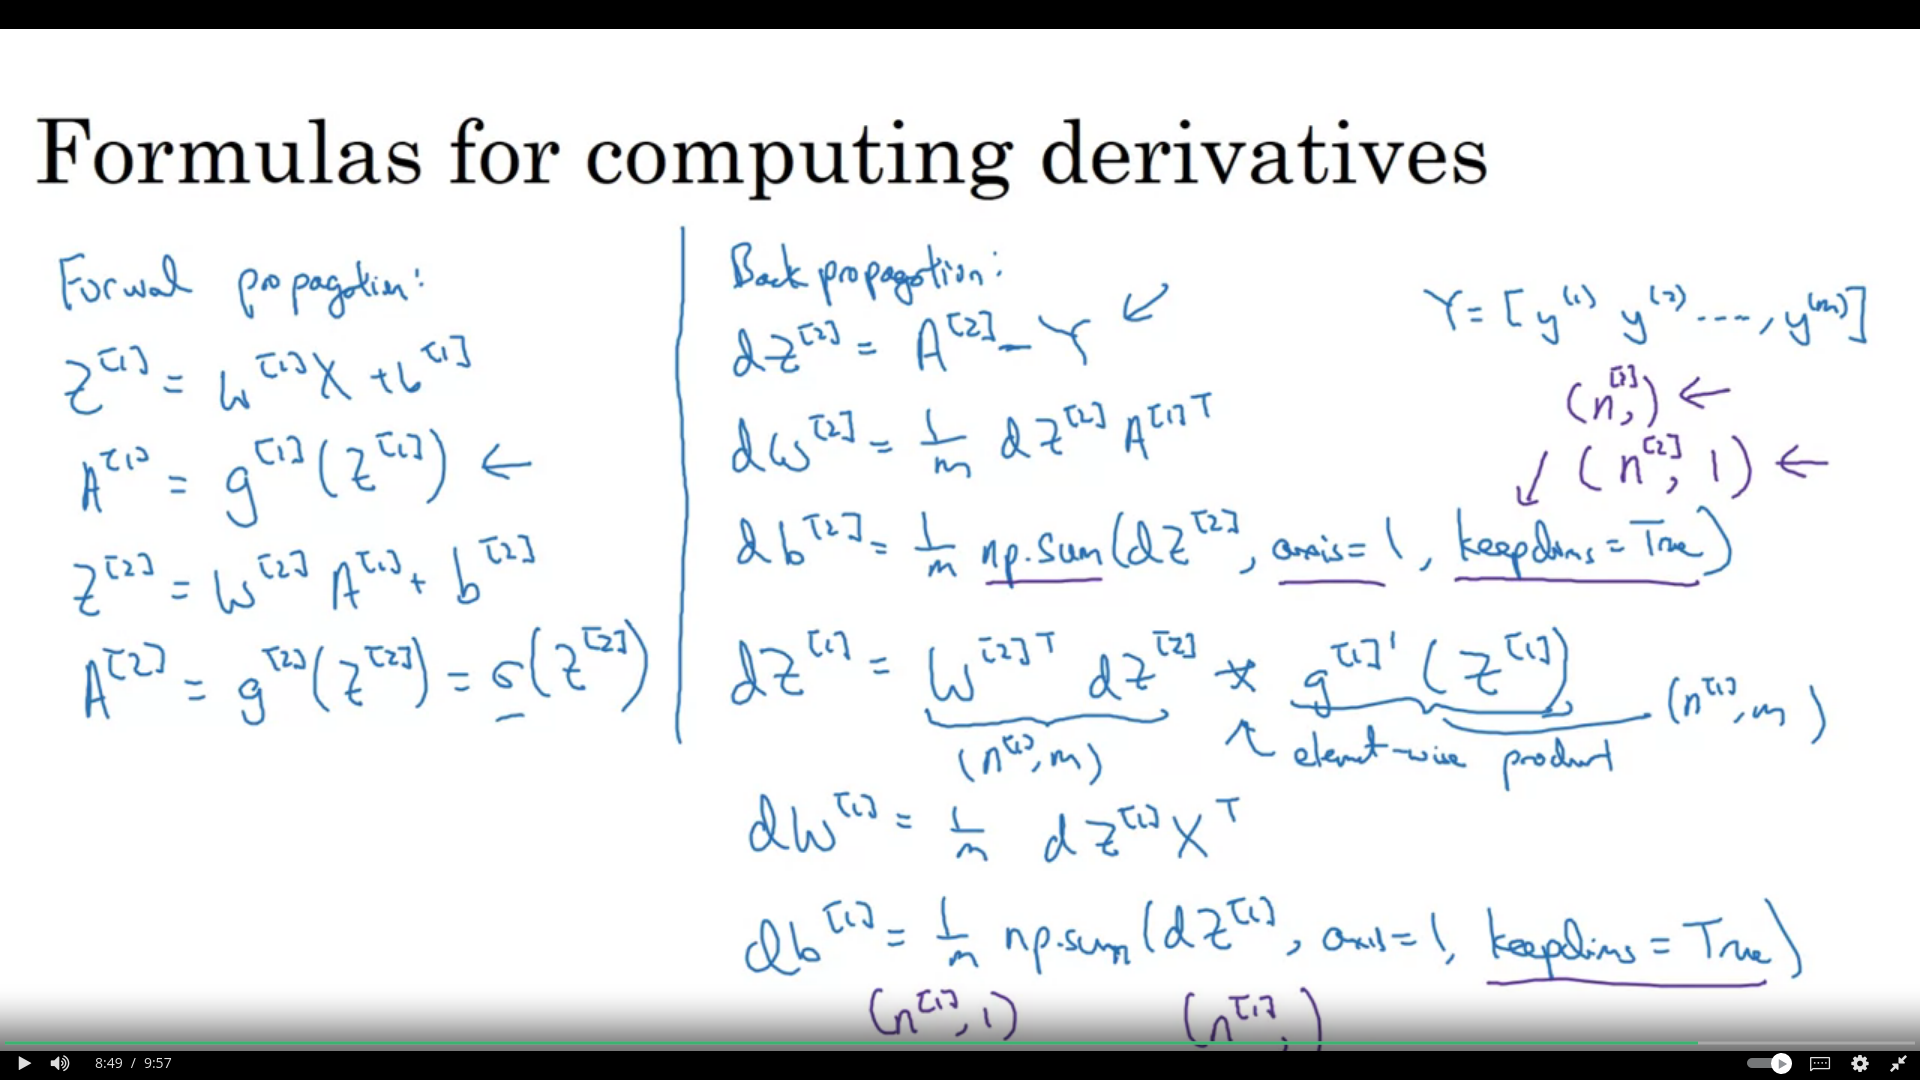 Formulas for computing derivatives
Forwal propagation:
Z^[1] = W^[1]X + b^[1]
A^[1] = g^[1](Z^[1]) ←
Z^[2] = W^[2] A^[1] + b^[2]
A^[2] = g^[2](Z^[2]) = σ(Z^[2])
Back propagation:
dZ^[2] = A^[2] - Y ↙
dW^[2] = 1/m dZ^[2] A^[1]T
db^[2] = 1/m np.sum(dZ^[2], axis=1, keepdims=True)
dZ^[1] = W^[2]T dZ^[2] * g^[1]'(Z^[1])
(n^[1], m)
↖ element-wise product
(n^[1], m)
dW^[1] = 1/m dZ^[1] X^T
db^[1] = 1/m np.sum(dZ^[1], axis=1, keepdims=True)
(n^[1], 1) (n^[1],)
Y = [y^(1) y^(2) ...., y^(m)]
(n^[2],) ←
↙ (n^[2], 1) ←
8:49 / 9:57